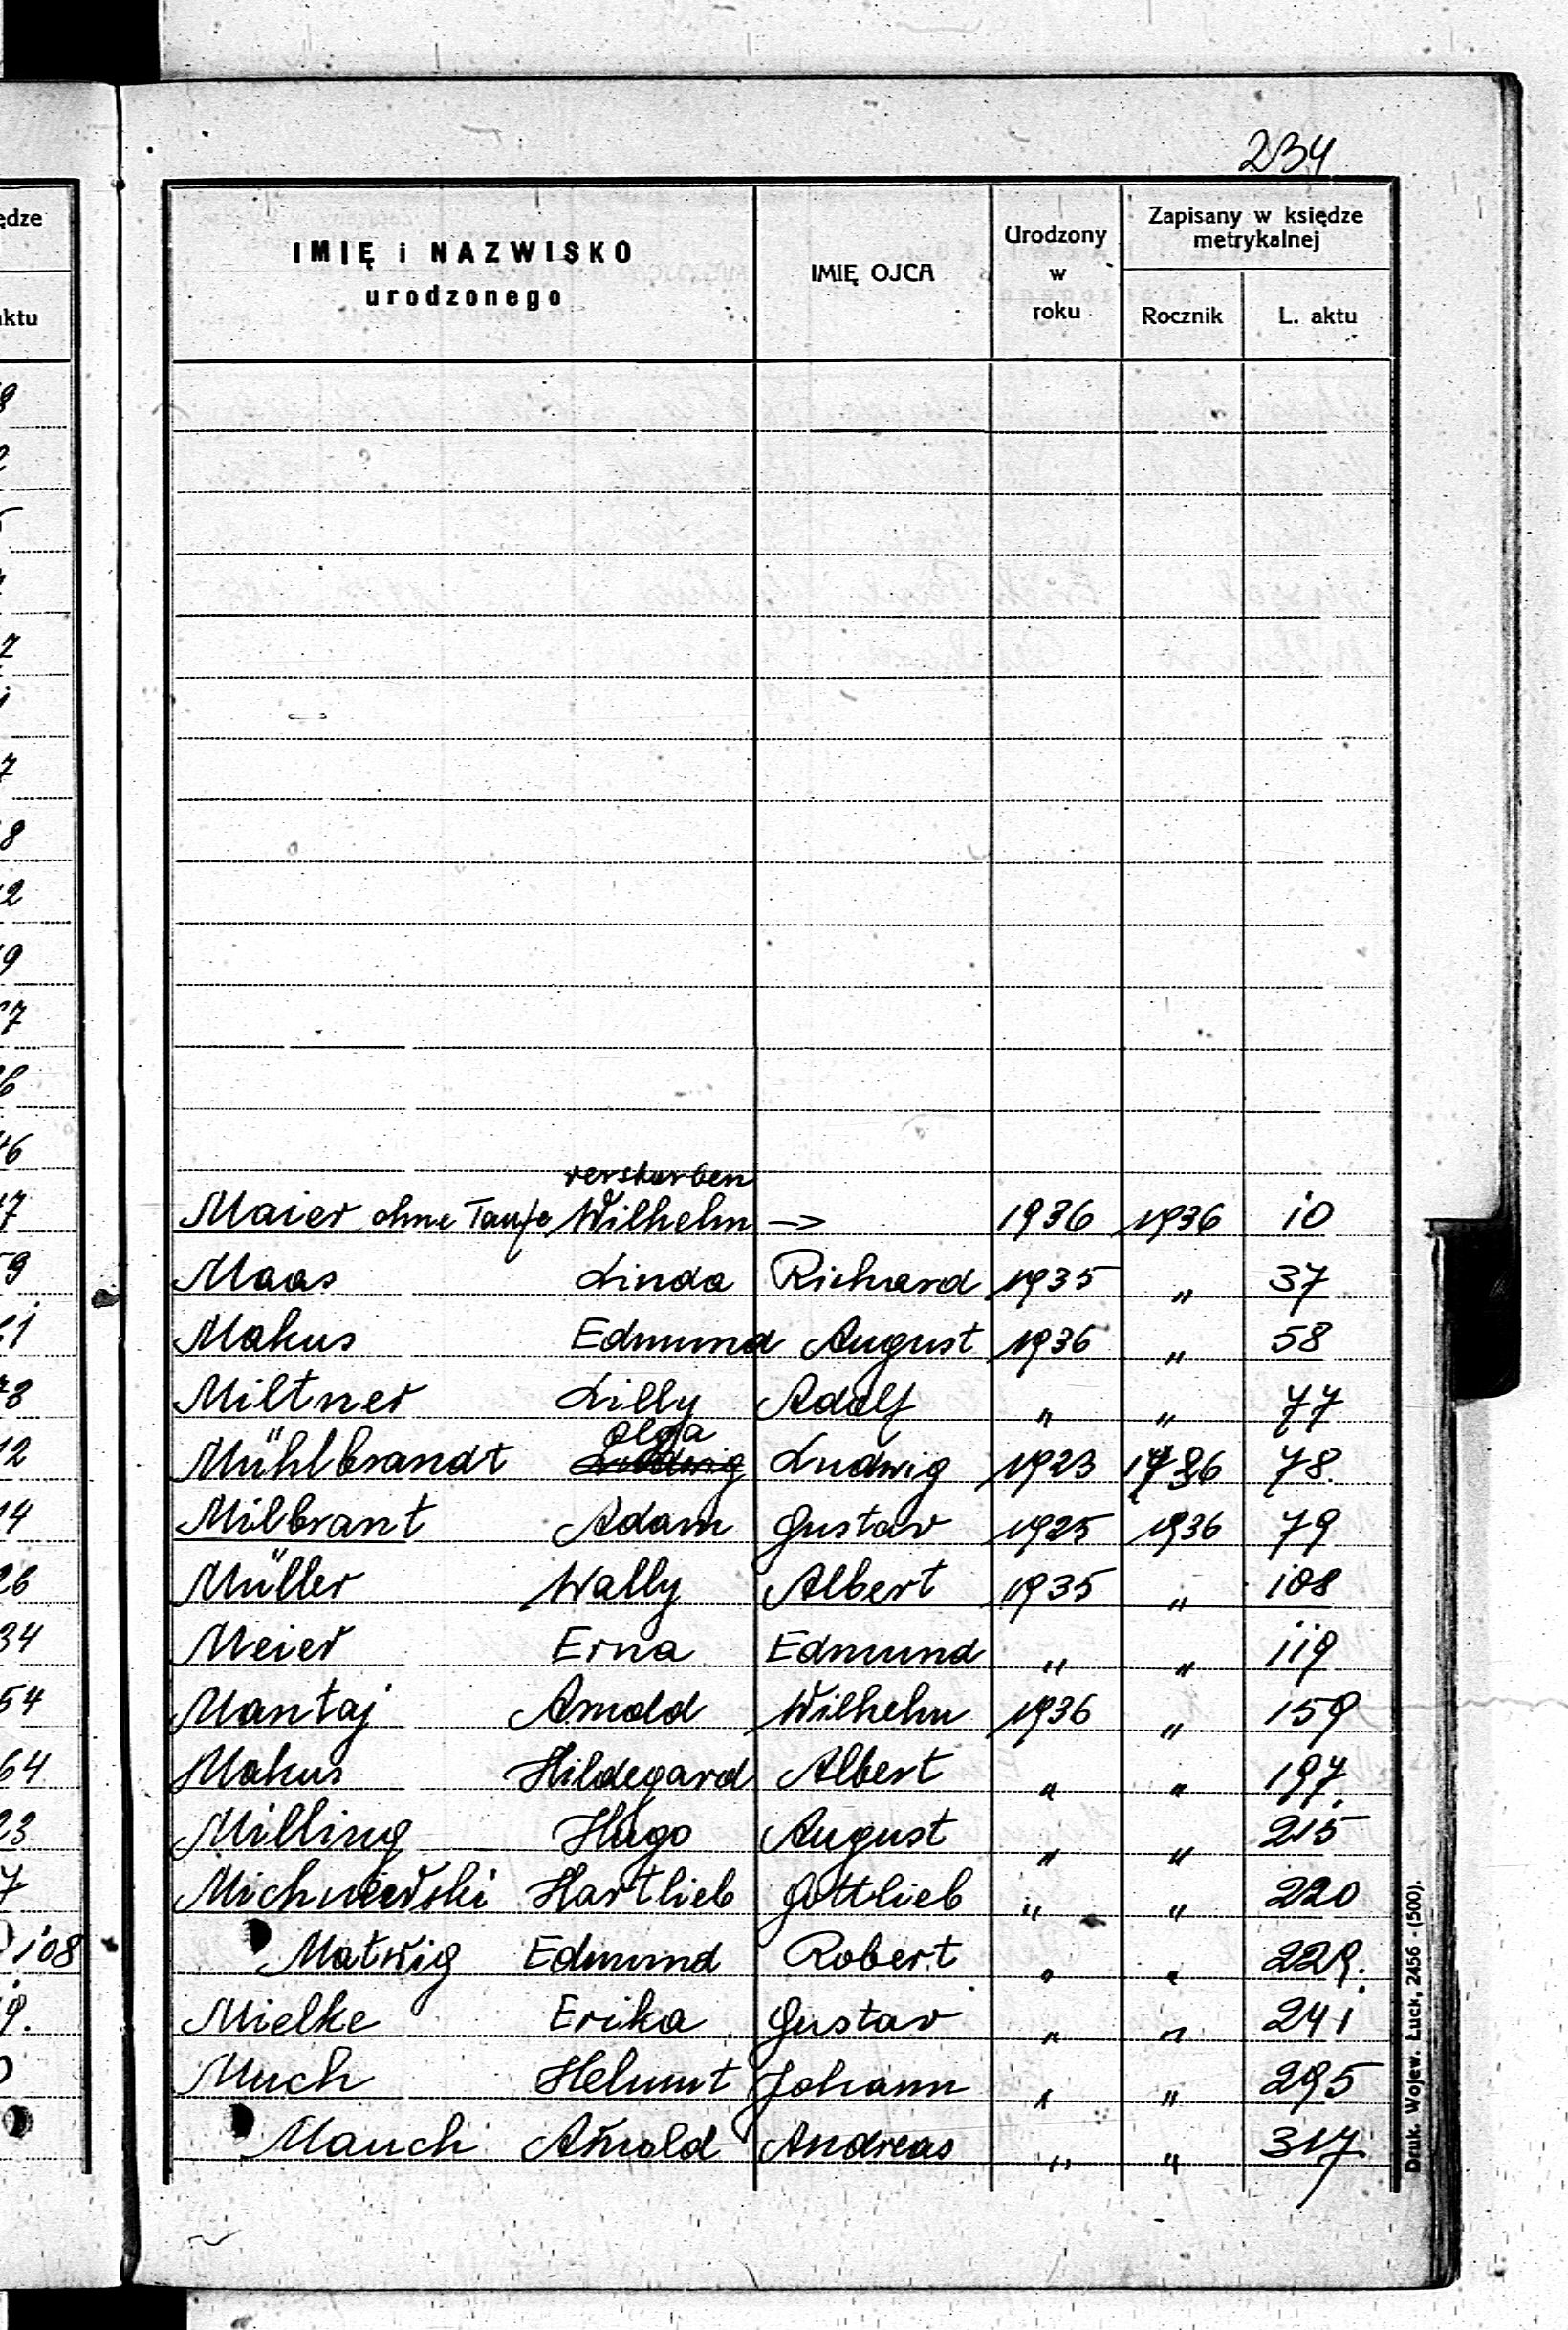 234
ędze
aktu
IMIĘ i NAZWISKO
urodzonego
IMIĘ OJCA
Urodzony
w
roku
Zapisany w księdze
metrykalnej
Rocznik
L. aktu
verstorben
Maier ohne Taufe Wilhelm —> 1936 1936 10
Maas Linda Richard 1935 " 37
Makus Edmund August 1936 " 58
Miltner Lilly Adolf " " 77
Olga
Mühlbrandt Ludwig Ludwig 1923 1936 78
Milbrant Adam Gustav 1925 1936 79
Müller Wally Albert 1935 " 108
Meier Erna Edmund " " 119
Mantaj Arnold Wilhelm 1936 " 159
Makus Hildegard Albert " " 197
Milling Hugo August " " 215
Michniewski Hartlieb Gottlieb " " 220
Matwig Edmund Robert " " 229.
Mielke Erika Gustav " " 241
Much Helmut Johann " " 295
Mauch Arnold Andreas " " 317
Druk. Wojew. Łuck, 2456 - (500).